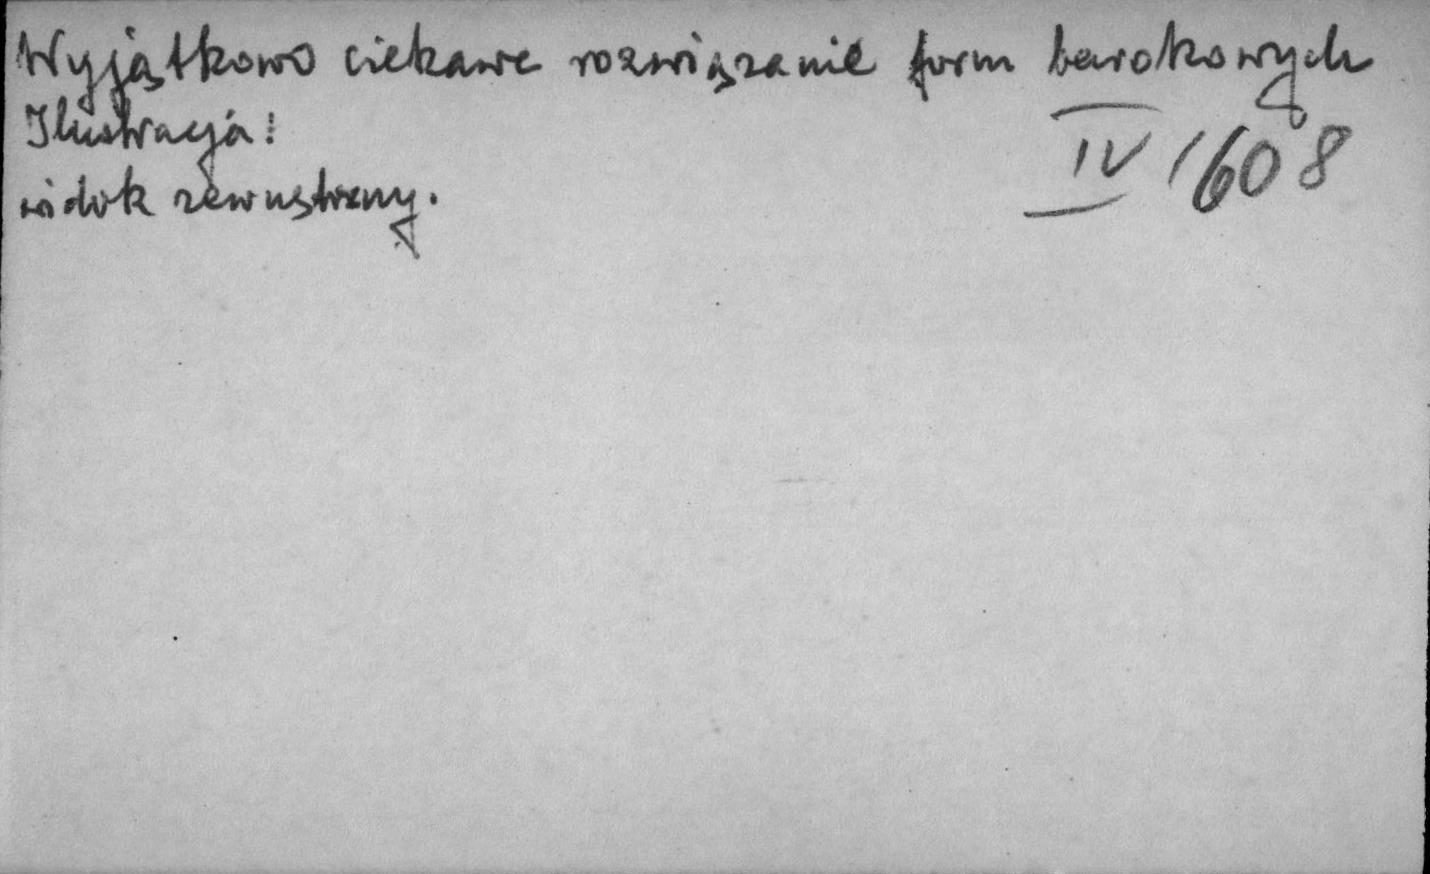 Wyjątkowo ciekawe rozwiązanie form barokowych
Ilustracja:
IV 1608
widok zewnętrzny.